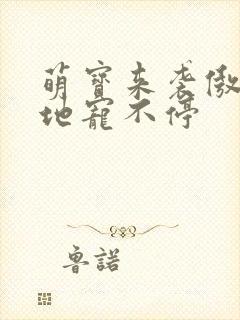 萌寶来袭傲
地寵不停
魯諾